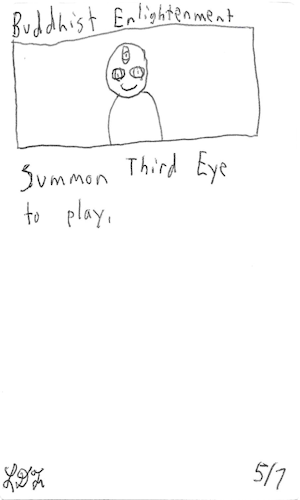 Buddhist Enlightenment
Summon Third Eye
to play.
5/7